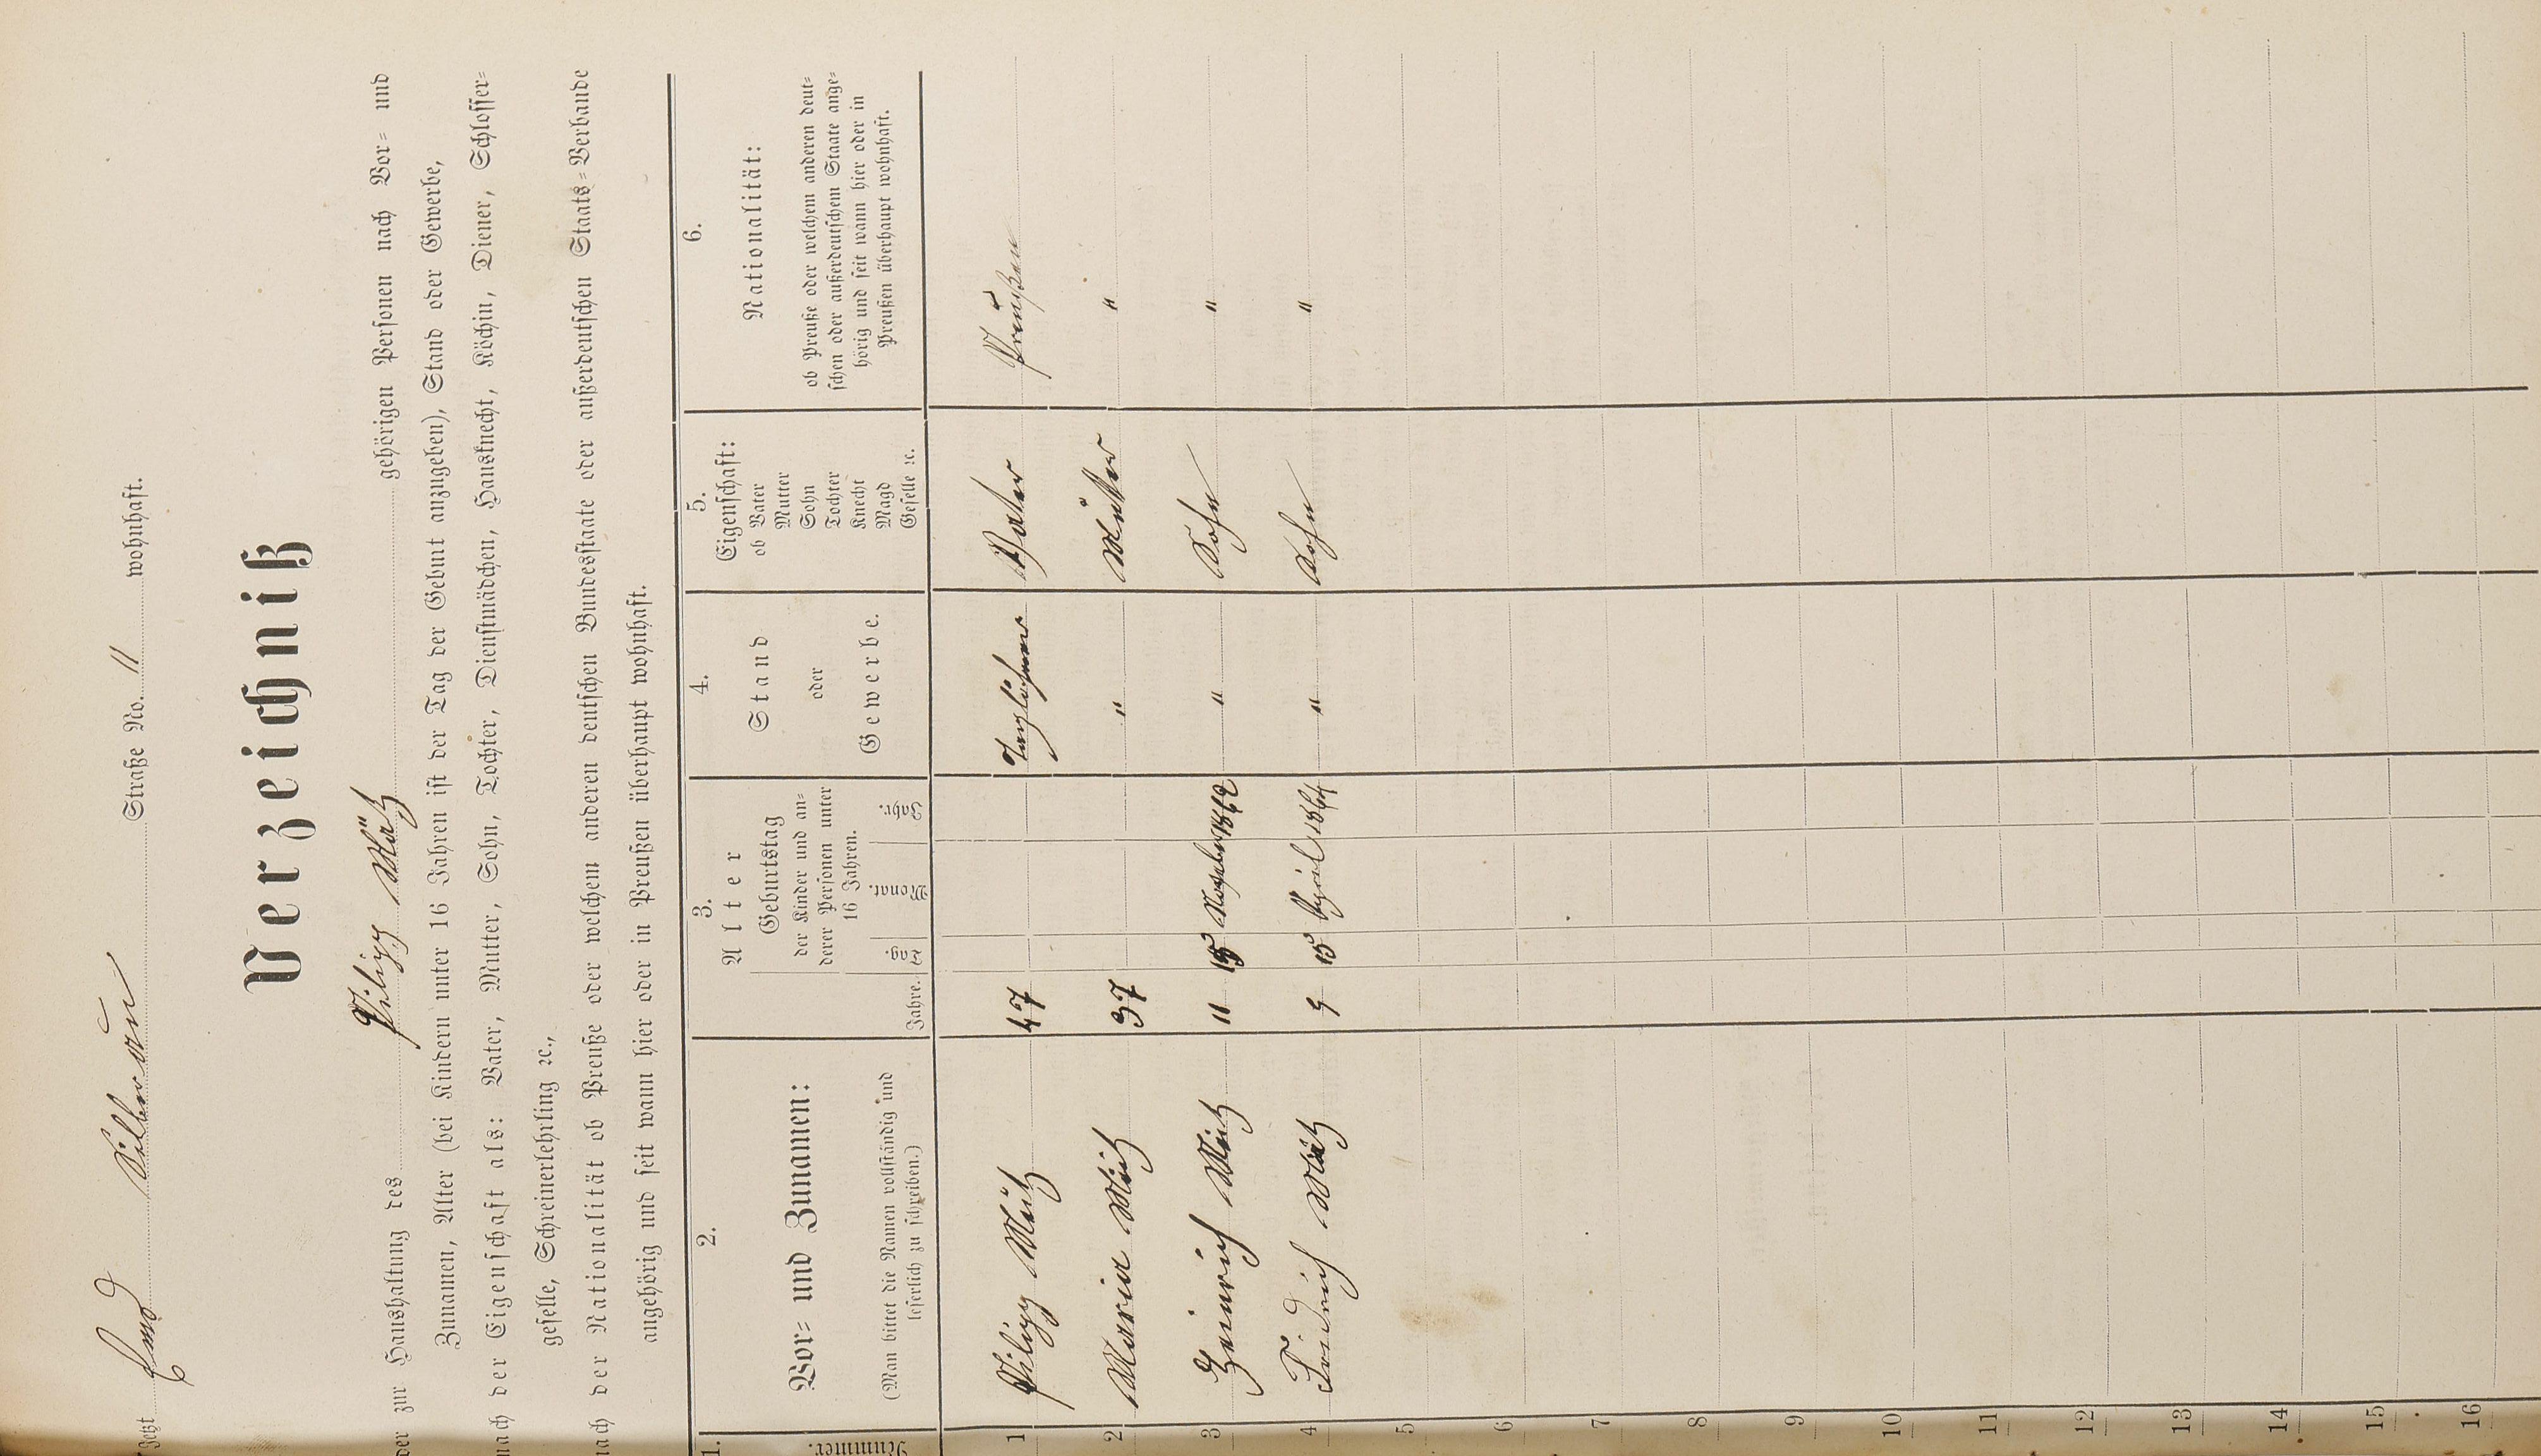 Jetzt Emd Silberau Straße No. 11 wohnhaft.
Verzeichniß
der zur Haushaltung des Philipp Mütz gehörigen Personen nach Vor- und
Zunamen, Alter (bei Kindern unter 16 Jahren ist der Tag der Geburt anzugeben), Stand oder Gewerbe,
nach der Eigenschaft als: Vater, Mutter, Sohn, Tochter, Dienstmädchen, Hausknecht, Köchin, Diener, Schlosser-
geselle, Schreinerlehrling ꝛc.,
nach der Nationalität ob Preuße oder welchem anderen deutschen Bundesstaate oder außerdeutschen Staats-Verbande
angehörig und seit wann hier oder in Preußen überhaupt wohnhaft.
1. 2. 3. 4. 5. 6.
Nummer.
Vor- und Zunamen:
(Man bittet die Namen vollständig und
leserlich zu schreiben.)
Alter
Jahre.
Geburtstag
der Kinder und an-
derer Personen unter
16 Jahren.
Tag. Monat. Jahr.
Stand
oder
Gewerbe.
Eigenschaft:
ob Vater
Mutter
Sohn
Tochter
Knecht
Magd
Geselle ꝛc.
Nationalität:
ob Preuße oder welchem anderen deut-
schen oder außerdeutschen Staate ange-
hörig und seit wann hier oder in
Preußen überhaupt wohnhaft.
1 Philipp Mütz 47 Taglöhner Vater Preußen
2 Maria Mütz 37 " Mutter "
3 Heinrich Mütz 11 " Sohn "
4 Friedrich Mütz 9 15 April 1864 " Sohn "
5
6
7
8
9
10
11
12
13
14
15
16